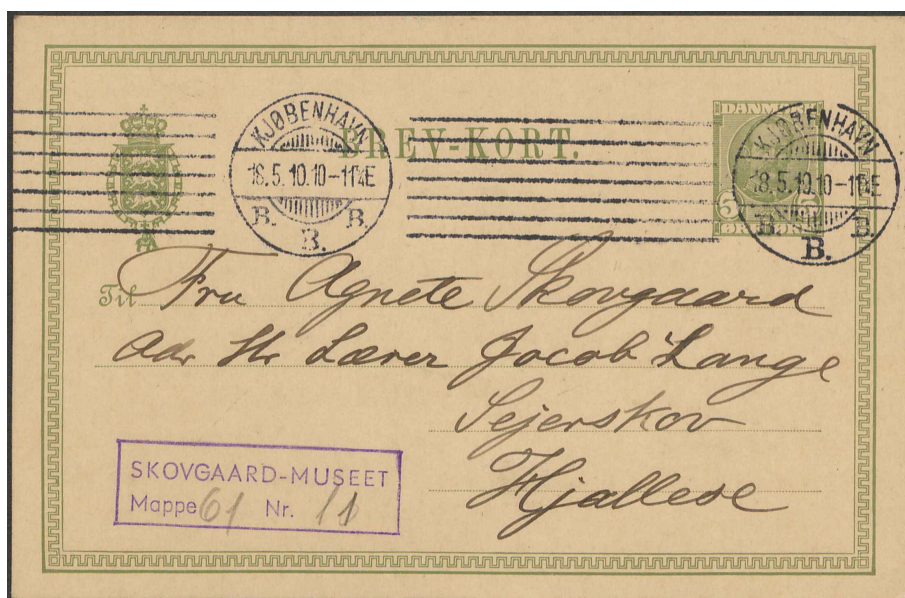 KJØBENHAVN
18.5.10.10-11¼E
B. B. B.
BREV-KORT.
DANMARK
5 5
KJØBENHAVN
18.5.10.10-11¼E
B. B. B.
Til Fru Agnete Skovgaard
Adr Hr Lærer Jacob Lange
Sejerskov
Hjallese
SKOVGAARD-MUSEET
Mappe 61 Nr. 11